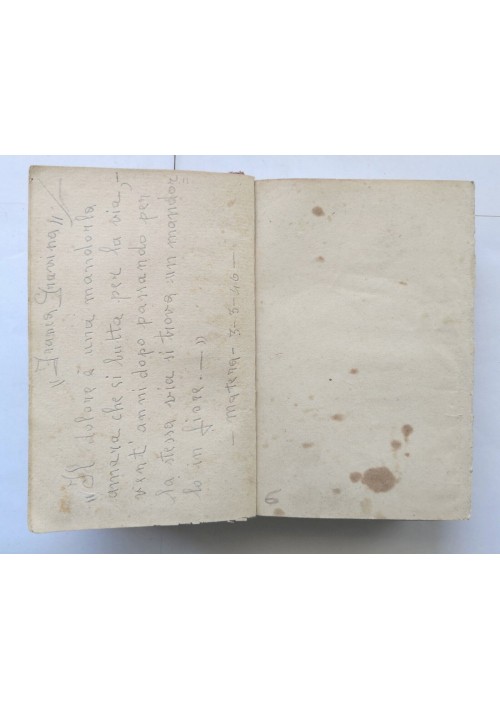 "Il dolore è una mandorla
amara che si butta per la via,-
vent'anni dopo passando per
la stessa via si trova un mandor
lo in fiore.—"
— Matera - 3-3-40 —
6